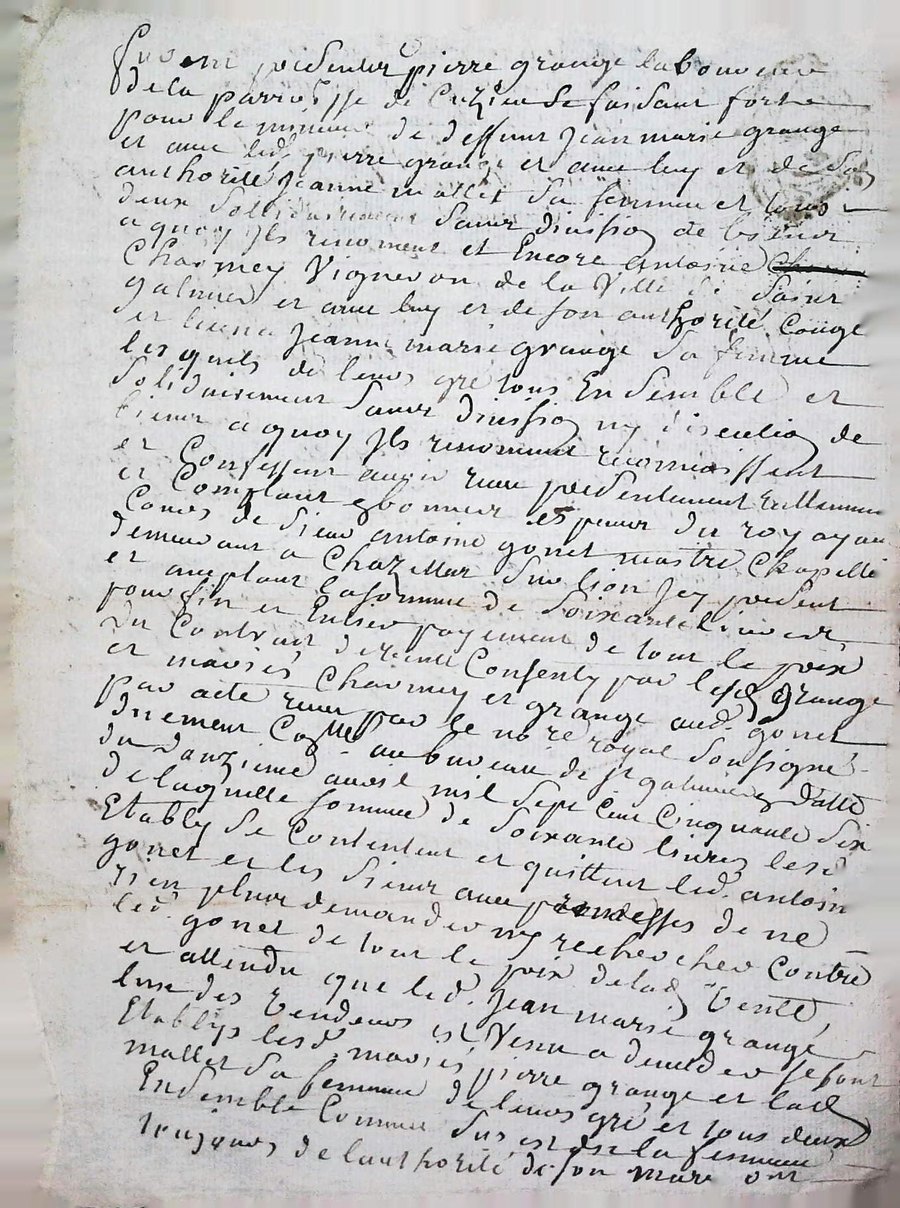 furent presents pierre grange laboureur
de la parroisse de Cuzieu se faisant forte
pour le mineur de deffunt Jean marie grange
et avec led. pierre grange et avec luy et de son
authorité Jeanne mallet sa femme et tous
deux sollidairement sans division de biens
a quoy ils renoncent et Encore antoine
Charmey Vigneron de la Ville de Saint
galmier et avec luy et de son authorité Conge
et licence Jeanne marie grange sa femme
lesquels de leurs gré tous Ensemble et
solidairement sans division ny discution de
biens a quoy ils renoncent reconnaissent
et Confessent avoir receu presentement reellement
et Comptant en bonnes especes du royaume
Cours de sieur antoine gonet maitre Chapellier
demeurant a Chazelles sur lion Icy present
et acceptant la somme de soixante livres
pour fin et Entier payement de tout le prix
du Contrat de vente Consenty par lesd. grange
et mariés Charmey et grange aud. gonet
par acte receu par le no.re royal soussigné
duement Collé au bureau de st galmier datte
du onzieme aoust mil sept Cent Cinquante six
de laquelle somme de soixante livres lesd.
Etably se Contentent et quittent led. antoine
gonet et les siens avec promesses de ne
rien plus demander ny rechercher Contre
led. gonet de tout le prix de lad. Vente
et attendu que led. Jean marie grange
lun des Vendeurs est Venu a deceder se sont
Etablys lesd. mariés pierre grange et lad.
mallet sa femme de leurs gré et tous deux
Ensemble Comme dessus est dit la femme
toujours de lauthorité de son mary ont